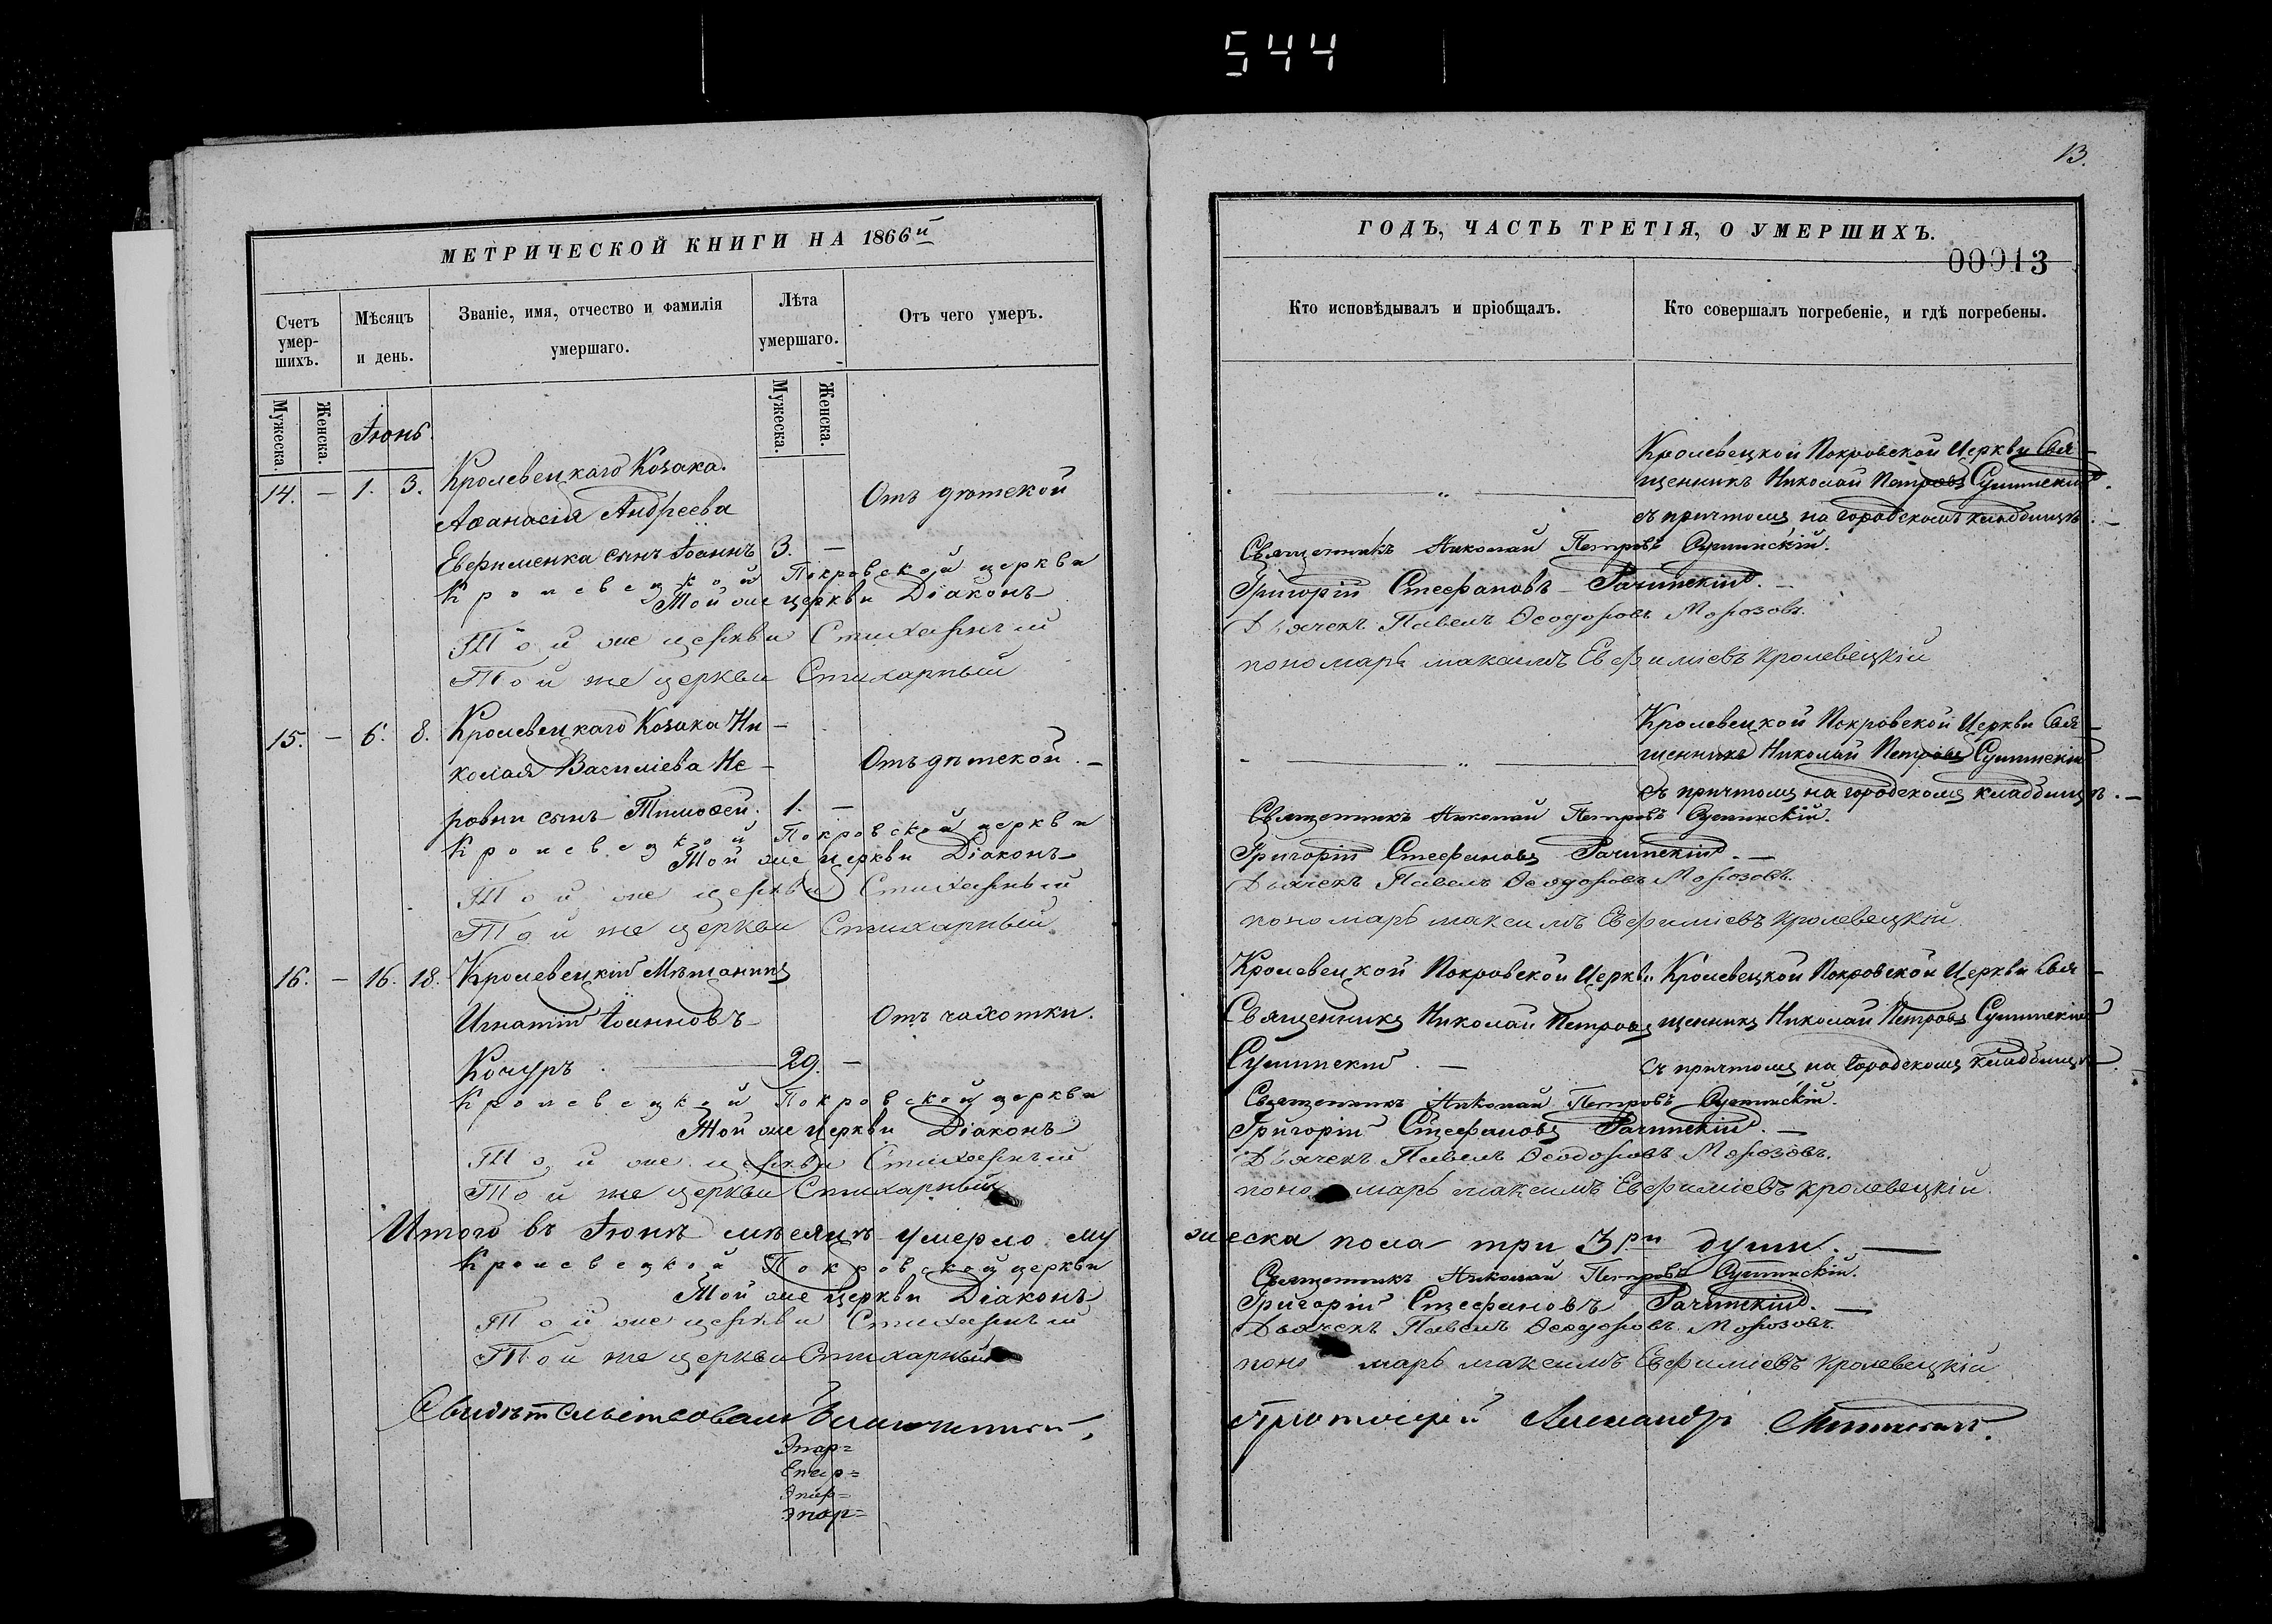 544
13.
МЕТРИЧЕСКОЙ КНИГИ НА 1866й
Счетъ умер-шихъ.
Мѣсяцъ и день.
Званіе, имя, отчество и фамилія умершаго.
Лѣта умершаго.
Отъ чего умеръ.
Мужеска.
Женска.
Іюнь.
Мужеска.
Женска.
14. — 1. 3. Кролевецкаго Козака
Аѳанасія Андреева
Отъ дѣтской
Евфименка сынъ Іоаннъ 3. —
Кролевецкой Покровской церкви
Той же церкви Діаконъ
Той же церкви Стихарный
Той же церкви Стихарный
15. — 6. 8. Кролевецкаго Козака Ни-
колая Василіева Не-
Отъ дѣтской. —
ровни сынъ Тимоѳей. 1. —
Кролевецкой Покровской церкви
Той же церкви Діаконъ
Той же церкви Стихарный
Той же церкви Стихарный
16. — 16. 18. Кролевецкій Мѣщанинъ
Игнатій Іоанновъ
Отъ чахотки.
Кочуръ. — 29. —
Кролевецкой Покровской церкви
Той же церкви Діаконъ
Той же церкви Стихарный
Той же церкви Стихарный
Итого въ Іюнѣ мѣсяцѣ умерло му
Кролевецкой Покровской церкви
Той же церкви Діаконъ
Той же церкви Стихарный
Той же церкви Стихарный
Свидѣтельствовалъ
ГОДЪ, ЧАСТЬ ТРЕТІЯ, О УМЕРШИХЪ.
00013
Кто исповѣдывалъ и пріобщалъ.
Кто совершалъ погребеніе, и гдѣ погребены.
Кролевецкой Покровской Церкви Свя-
щенникъ Николай Петровъ
съ причтомъ на городскомъ кладбищѣ. —
Священникъ Николай Петровъ
Григорій Стефановъ Рачинскій. —
Дьячекъ Павелъ Ѳеодоровъ Морозовъ.
пономарь максимъ Евфиміевъ кролевецкій
Кролевецкой Покровской Церкви Свя-
щенникъ Николай Петровъ
съ причтомъ на городскомъ кладбищѣ. —
Священникъ Николай Петровъ
Григорій Стефановъ Рачинскій. —
Дьячекъ Павелъ Ѳеодоровъ Морозовъ.
пономарь максимъ Евфиміевъ кролевецкій
Кролевецкой Покровской Церкви
Священникъ Николай Петровъ
Кролевецкой Покровской Церкви Свя-
щенникъ Николай Петровъ
съ причтомъ на городскомъ кладбищѣ
Священникъ Николай Петровъ
Григорій Стефановъ Рачинскій. —
Дьячекъ Павелъ Ѳеодоровъ Морозовъ.
пономарь максимъ Евфиміевъ кролевецкій.
жеска пола три 3ри души. —
Священникъ Николай Петровъ
Григорій Стефановъ Рачинскій. —
Дьячекъ Павелъ Ѳеодоровъ Морозовъ.
пономарь максимъ Евфиміевъ кролевецкій
Протоіерей Александръ